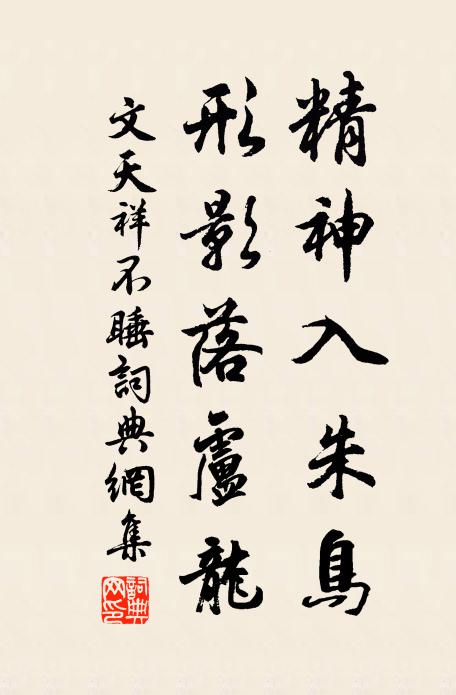 精神入朱鳥
形影落盧龍
文天祥不睡詞典網集
詞典網印